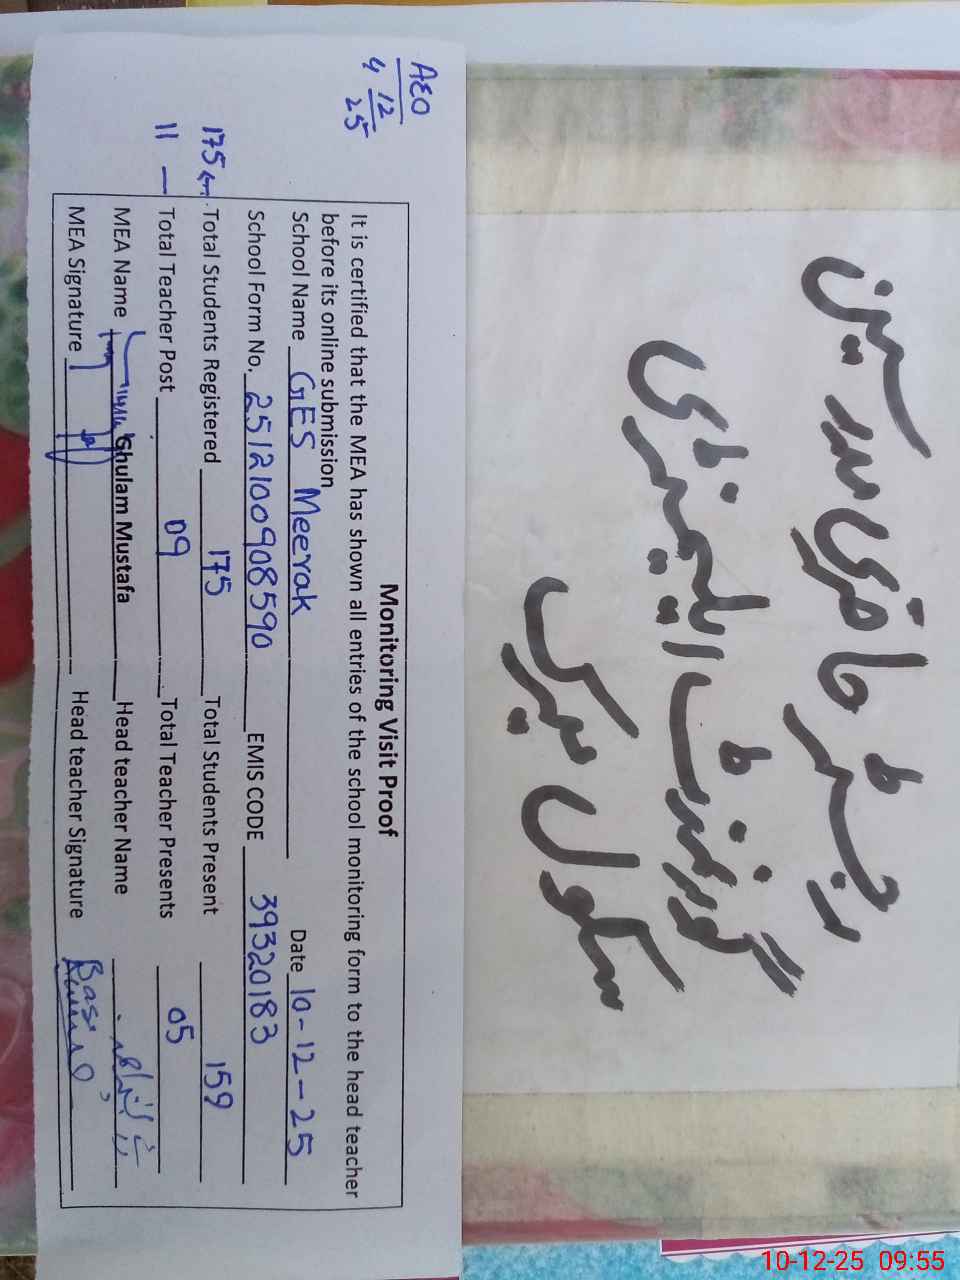 AEO
4 12/25
Monitoring Visit Proof
It is certified that the MEA has shown all entries of the school monitoring form to the head teacher
before its online submission
School Name GES Meerak Date 10-12-25
School Form No. 2512100908590 EMIS CODE 39320183
175 Total Students Registered 175 Total Students Present 159
11 — Total Teacher Post 09 Total Teacher Presents 05
MEA Name Ghulam Mustafa Head teacher Name
MEA Signature Head teacher Signature
رجسٹر حاضری مدرسین
گورنمنٹ ایلیمنٹری
سکول میرک
10-12-25 09:55